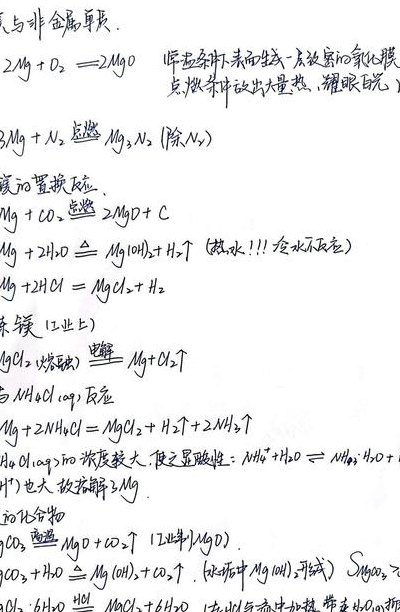 与非金属单质.
2Mg + O₂ ══ 2MgO 常温条件下表面生成一层致密的氧化膜
点燃条件放出大量热、耀眼白光
3Mg + N₂ 点燃══ Mg₃N₂ (除N₂)
镁的置换反应.
Mg + CO₂ 点燃══ 2MgO + C
Mg + 2H₂O △══ Mg(OH)₂ + H₂↑ (热水!!! 冷水不反应)
Mg + 2HCl = MgCl₂ + H₂
炼镁 (工业上)
MgCl₂ (熔融) 电解══ Mg + Cl₂↑
与NH₄Cl(aq)反应
Mg + 2NH₄Cl = MgCl₂ + H₂↑ + 2NH₃↑
H₄Cl(aq)的浓度较大,使之显酸性: NH₄⁺ + H₂O ⇌ NH₃·H₂O +
H⁺)也大 故溶解了Mg.
的化合物
gCO₃ 高温══ MgO + CO₂↑ (工业制MgO).
gCO₃ + H₂O △══ Mg(OH)₂ + CO₂↑. (水垢中Mg(OH)₂形成) SMgCO₃
gCl₂·6H₂O HCl══ MgCl₂ + 6H₂O